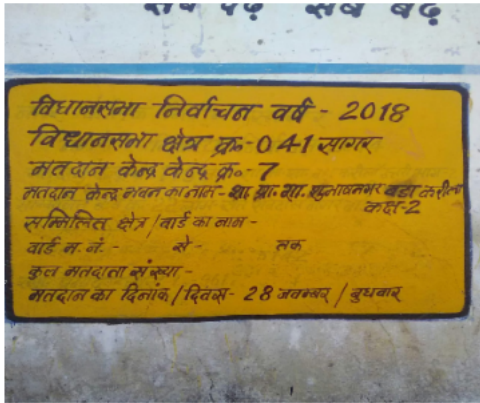 सब पढ़ें सब बढ़ें
विधानसभा निर्वाचन वर्ष - 2018
विधानसभा क्षेत्र क्र.- 041 सागर
मतदान केन्द्र केन्द्र क्र.- 7
मतदान केन्द्र भवन का नाम - शा. प्रा. शा. बड़ा करीला
कक्ष-2
सम्मिलित क्षेत्र / वार्ड का नाम -
वार्ड म. नं. - से - तक
कुल मतदाता संख्या -
मतदान का दिनांक / दिवस - 28 नवम्बर / बुधवार